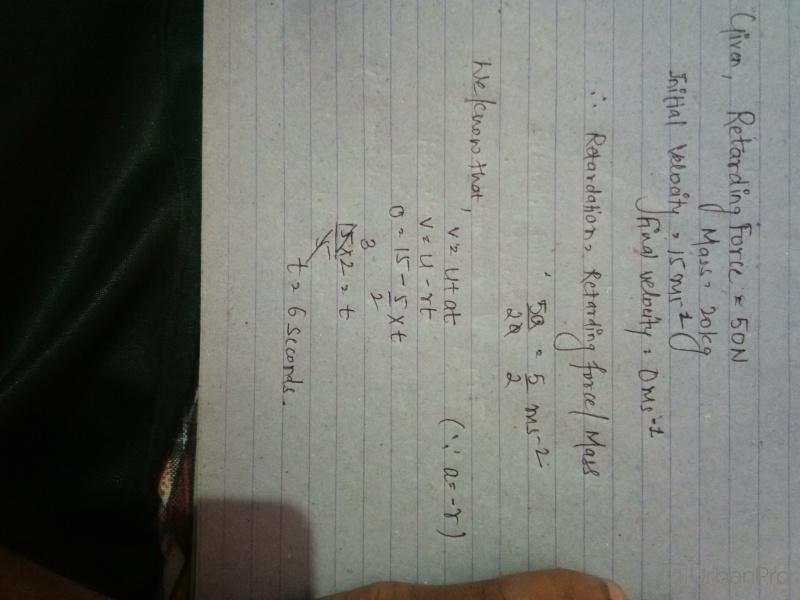 Given, Retarding Force = 50N
Mass = 20kg
Initial velocity = 15ms⁻¹
final velocity = 0ms⁻¹
∴ Retardation = Retarding force/Mass
50/20 = 5/2 ms⁻²
We know that, v = u+at
v = u - rt (∵ a = -r)
0 = 15 - 5/2 × t
15×2/5 = t
3
t = 6 seconds.
UrbanPro